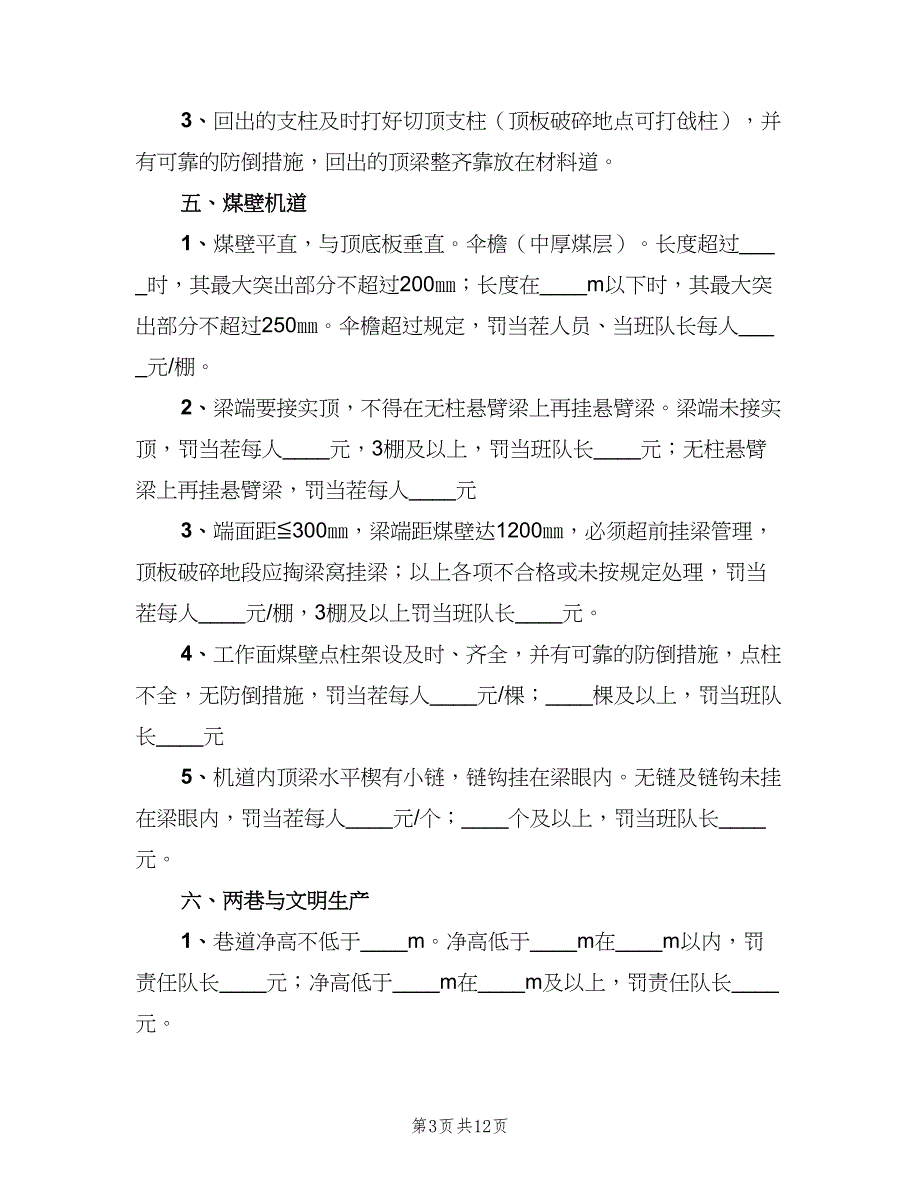 3、回出的支柱及时打好切顶支柱（顶板破碎地点可打戗柱），并
有可靠的防倒措施，回出的顶梁整齐靠放在材料道。
五、煤壁机道
1、煤壁平直，与顶底板垂直。伞檐（中厚煤层）。长度超过___
_时，其最大突出部分不超过200㎜；长度在____m以下时，其最大突
出部分不超过250㎜。伞檐超过规定，罚当茬人员、当班队长每人___
_元/棚。
2、梁端要接实顶，不得在无柱悬臂梁上再挂悬臂梁。梁端未接实
顶，罚当茬每人____元，3棚及以上，罚当班队长____元；无柱悬臂
梁上再挂悬臂梁，罚当茬每人____元
3、端面距≦300㎜，梁端距煤壁达1200㎜，必须超前挂梁管理，
顶板破碎地段应掏梁窝挂梁；以上各项不合格或未按规定处理，罚当
茬每人____元/棚，3棚及以上罚当班队长____元。
4、工作面煤壁点柱架设及时、齐全，并有可靠的防倒措施，点柱
不全，无防倒措施，罚当茬每人____元/棵；____棵及以上，罚当班队
长____元
5、机道内顶梁水平楔有小链，链钩挂在梁眼内。无链及链钩未挂
在梁眼内，罚当茬每人____元/个；____个及以上，罚当班队长____
元。
六、两巷与文明生产
1、巷道净高不低于____m。净高低于____m在____m以内，罚
责任队长____元；净高低于____m在____m及以上，罚责任队长____
元。
第3页共12页